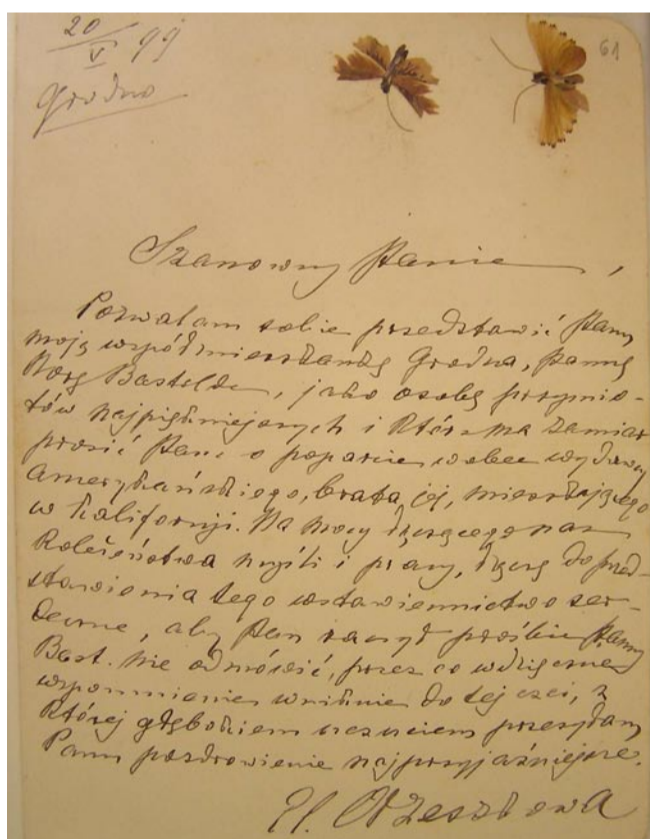 20/V 99
61
Grodno
Szanowny Panie,
Pozwalam sobie przedstawić Panu
moją współmieszkankę Grodna, Pannę
jako osobę przymio-
tów najpiękniejszych i która ma zamiar
prosić Pana o poparcie wobec wydawcy
amerykańskiego, brata jej, mieszkającego
w Kalifornji. Na mocy łączącego nas
koleżeństwa myśli i pracy, łączę do przed-
stawienia tego wstawiennictwo ser-
deczne, aby Pan raczył prośbie Panny
Bast. nie odmówić, przez co wdzięczne
wspomnienie wniknie do tej czci, z
której głębokiem uczuciem przesyłam
Panu pozdrowienie najprzyjaźniejsze.
El. Orzeszkowa